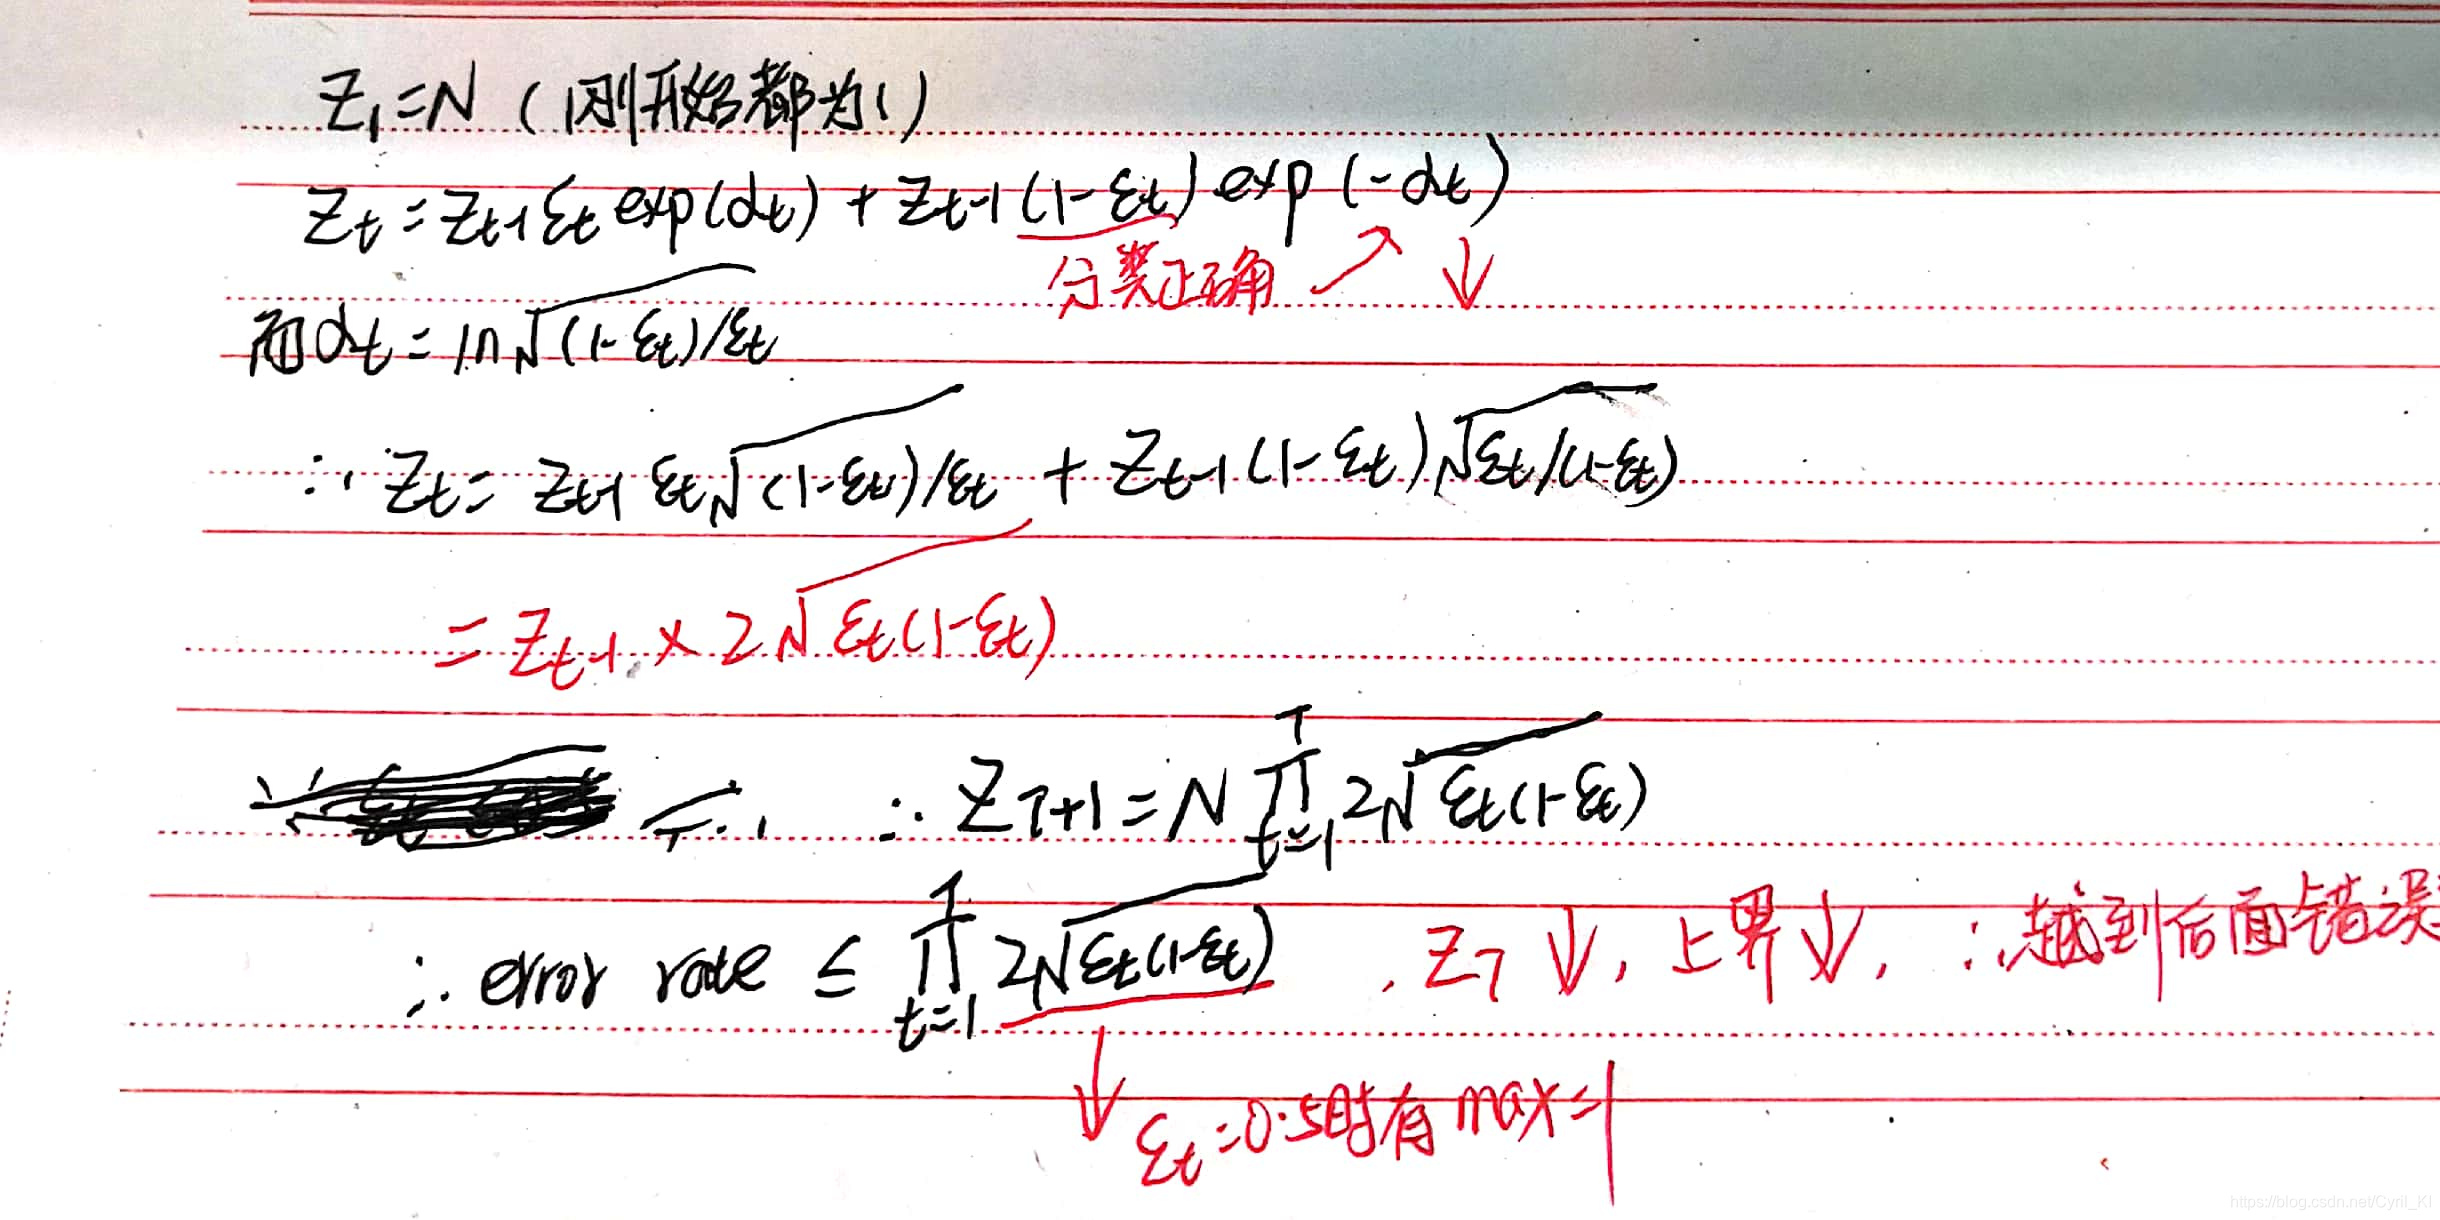 Z₁=N (刚开始都为1)
Zt = Zt-1 εt exp(αt) + Zt-1 (1-εt) exp(-αt)
分类正确 ↗ ↓
而αt = ln√(1-εt)/εt
∴ Zt = Zt-1 εt√(1-εt)/εt + Zt-1 (1-εt)√εt/(1-εt)
= Zt-1 × 2√εt(1-εt)
∴ Z T+1 = N ∏ᵀt=1 2√εt(1-εt)
∴ error rate ≤ ∏ᵀt=1 2√εt(1-εt) , ZT ↓, 上界↓, ∴越到后面错误
↓ εt=0.5时有 max=1
https://blog.csdn.net/Cyril_KI